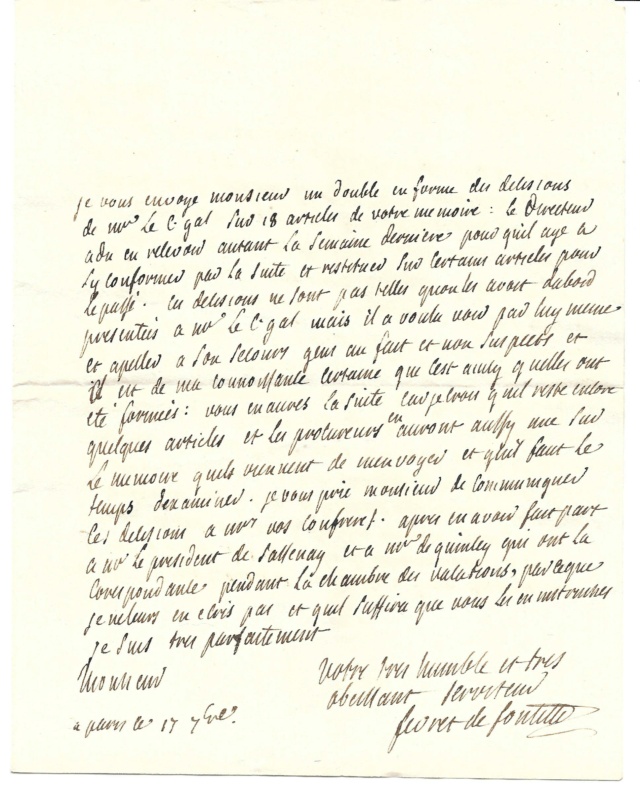 je vous envoye monsieur un double en forme des decisions
de mr Le C. gal Sur 18 articles de votre memoire : le Directeur
a du en recevoir autant La Semaine derniere pour quil aye a
Sy conformer par La Suite et restituer Sur Certains articles pour
Le passé. Ces decisions ne Sont pas telles quon les avoit dabord
presentés a mr Le C. gal mais il a voulu voir par luy meme
et apeller a Son Secours gens au fait et non Suspects et
il est de ma connoissance certaine que Cest ainsy quelles ont
eté formées : vous en aures la Suite car je crois qu'il reste encore
quelques articles et les procureurs en auront aussy une Sur
Le memoire quils viennent de m'envoyer et qu'il faut Le
temps d'examiner. je vous prie monsieur de Communiquer
Ces decisions a mrs vos confreres. apres en avoir fait part
a mr Le president de Sassenay et a mr de quincey qui ont La
Correspondance pendant La chambre des vacations, parceque
je ne leurs en ecris pas et quil Suffira que vous Les en instruisies
je Suis tres parfaitement
Monsieur
Votre tres humble et tres
obeissant Serviteur
fevret de fontette
a paris ce 17 7bre.